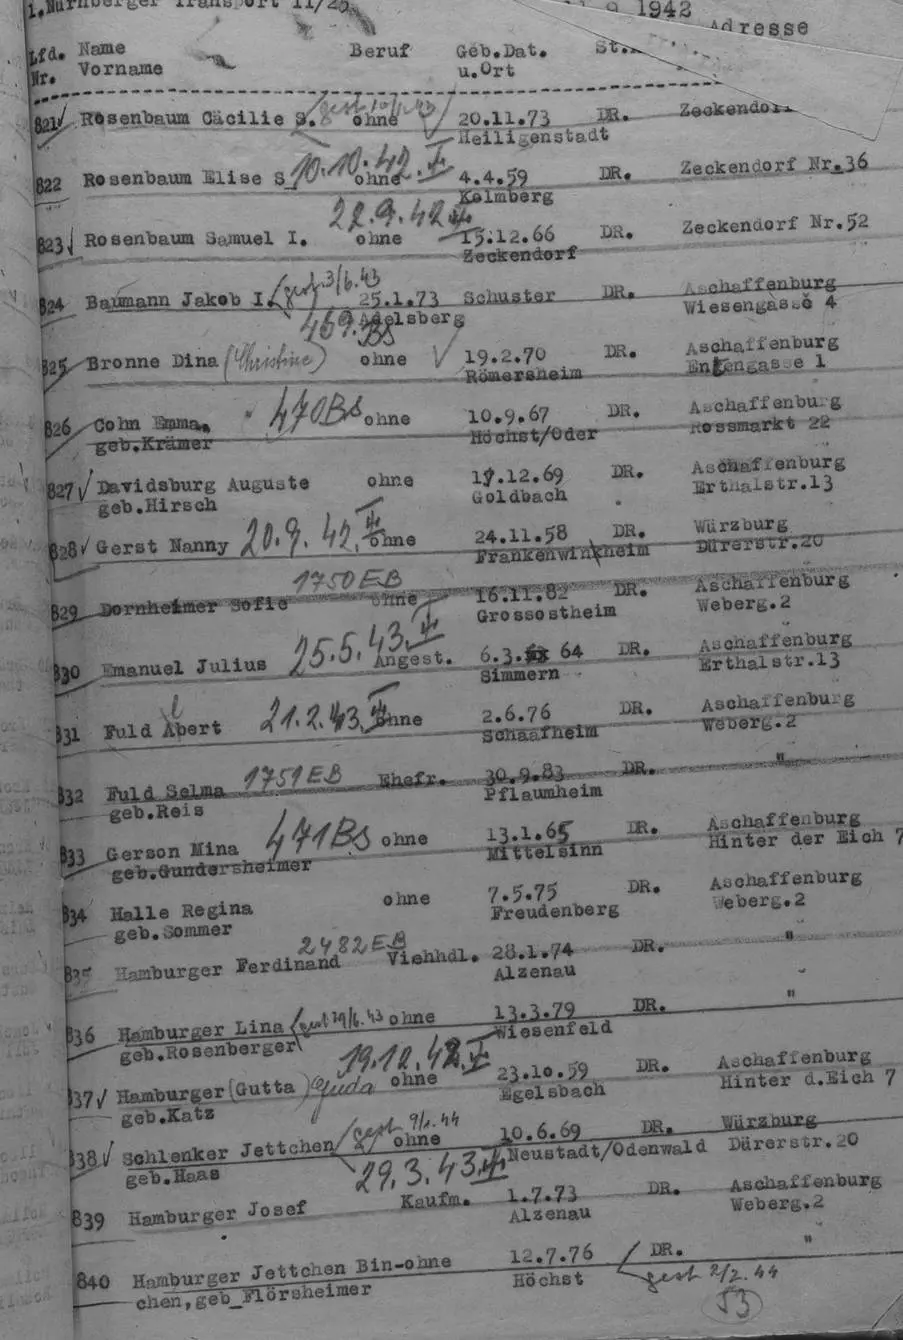 1.Nürnberger Transport II/25
9 1942
Lfd. Name Beruf Geb.Dat. St. Adresse
Nr. Vorname u.Ort
821 Rosenbaum Cäcilie S. gest 10/1.43 ohne 20.11.73 DR. Zeckendorf
Heiligenstadt
822 Rosenbaum Elise S 10.10.42. ohne 4.4.59 DR. Zeckendorf Nr.36
Kolmberg
22.9.42
823 Rosenbaum Samuel I. ohne 15.12.66 DR. Zeckendorf Nr.52
Zeckendorf
824 Baumann Jakob I. gest. 3/6.43 25.1.73 Schuster DR. Aschaffenburg
Adelsberg Wiesengasse 4
469.BS
825 Bronne Dina (Christine) ohne 19.2.70 DR. Aschaffenburg
Römersheim Entengasse 1
826 Cohn Emma, 470BS ohne 10.9.67 DR. Aschaffenburg
geb.Krämer Höchst/Oder Rossmarkt 22
827 Davidsburg Auguste ohne 17.12.69 DR. Aschaffenburg
geb.Hirsch Goldbach Erthalstr.13
828 Gerst Nanny 20.9.42. ohne 24.11.58 DR. Würzburg
Frankenwinkheim Dürerstr.20
1750EB
829 Dornheimer Sofie ohne 16.11.82 DR. Aschaffenburg
Grossostheim Weberg.2
830 Emanuel Julius 25.5.43. Angest. 6.3. 64 DR. Aschaffenburg
Simmern Erthalstr.13
l
831 Fuld Abert 21.2.43. ohne 2.6.76 DR. Aschaffenburg
Schaafheim Weberg.2
832 Fuld Selma 1751EB Ehefr. 30.9.83 DR. "
geb.Reis Pflaumheim
833 Gerson Mina 471BS ohne 13.1.65 DR. Aschaffenburg
geb.Gundersheimer Mittelsinn Hinter der Eich 7
834 Halle Regina ohne 7.5.75 DR. Aschaffenburg
geb.Sommer Freudenberg Weberg.2
2482EB
835 Hamburger Ferdinand Viehhdl. 28.1.74 DR. "
Alzenau
836 Hamburger Lina gest 29/6.43 ohne 13.3.79 DR. "
geb.Rosenberger Wiesenfeld
19.12.42.
837 Hamburger (Gutta) Guda ohne 23.10.59 DR. Aschaffenburg
geb.Katz Egelsbach Hinter d.Eich 7
838 Schlenker Jettchen gest 9/1.44 ohne 10.6.69 DR. Würzburg
geb.Haas Neustadt/Odenwald Dürerstr.20
29.3.43.
839 Hamburger Josef Kaufm. 1.7.73 DR. Aschaffenburg
Alzenau Weberg.2
840 Hamburger Jettchen Bin-ohne 12.7.76 DR. "
chen,geb_Flörsheimer Höchst gest 2/2.44
53